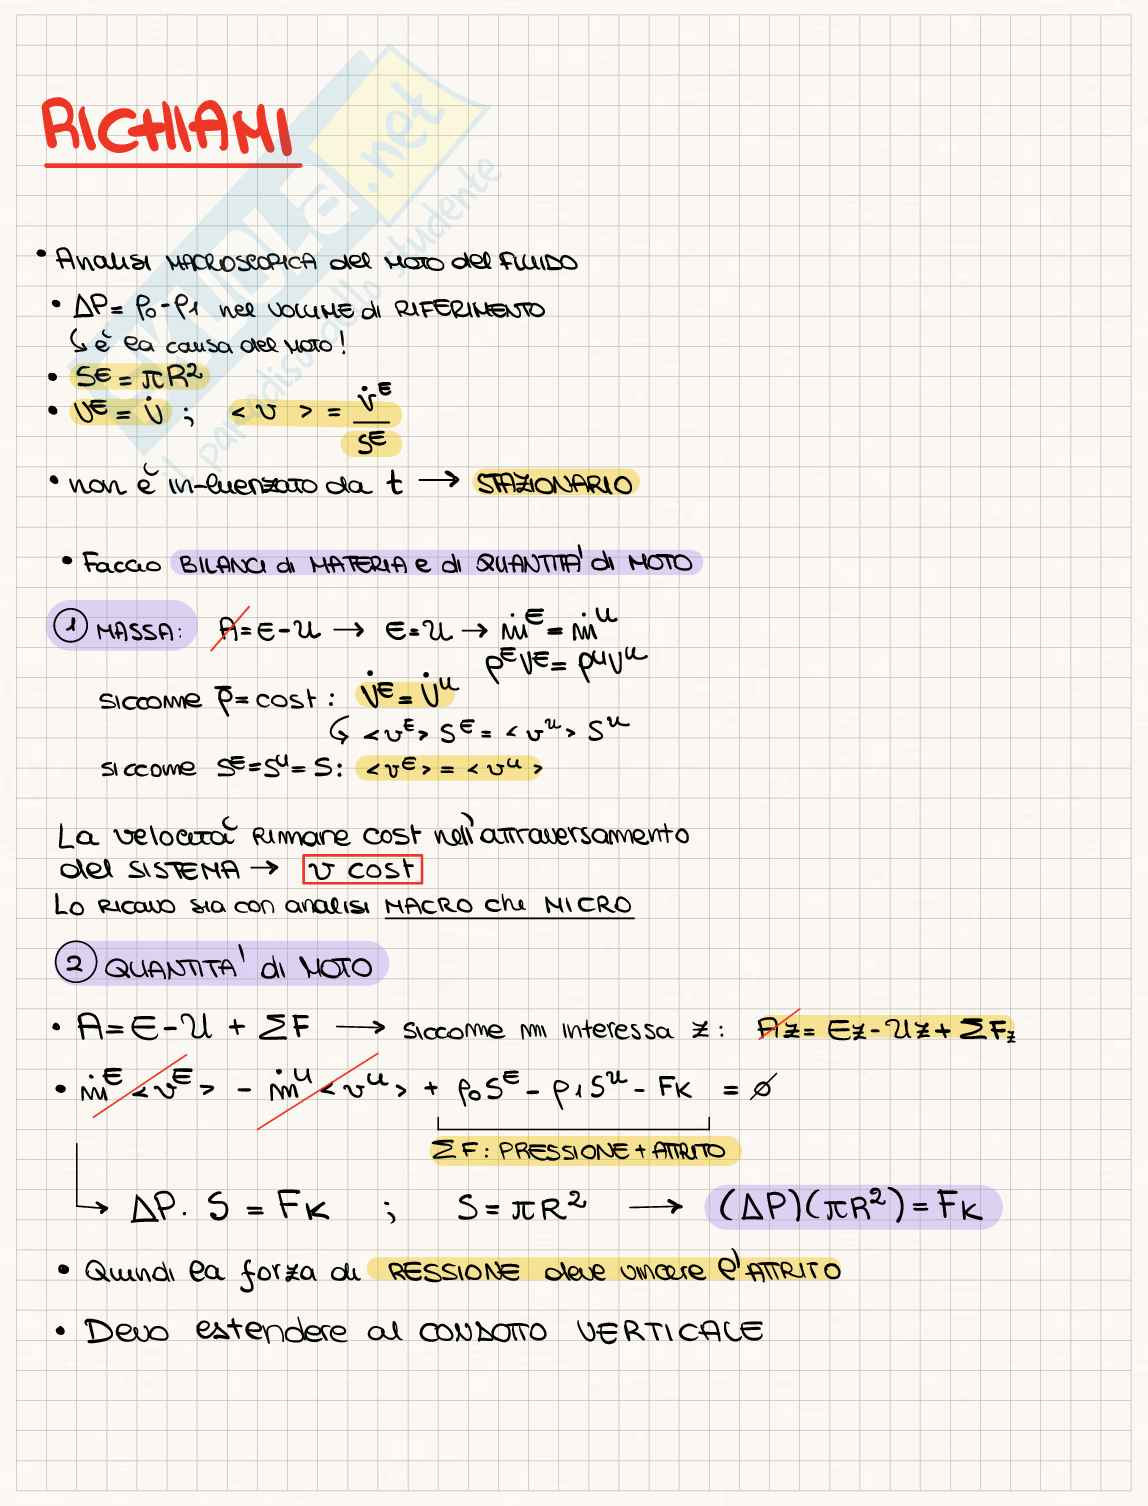 RICHIAMI
• Analisi MACROSCOPICA del MOTO del FLUIDO
• ΔP = p₀ - p₁ nel VOLUME di RIFERIMENTO
↳ è la causa del MOTO!
• Sᴱ = πR²
• Vᴱ = V̇ ; <v> = v̇ᴱ / Sᴱ
• non è influenzato da t → STAZIONARIO
• Faccio BILANCI di MATERIA e di QUANTITA' di MOTO
① MASSA: A = E - U → E = U → ṁᴱ = ṁᵁ
ρᴱVᴱ = ρᵁVᵁ
siccome ρ̄ = cost : V̇ᴱ = V̇ᵁ
↳ <vᴱ> Sᴱ = <vᵁ> Sᵁ
siccome Sᴱ = Sᵁ = S: <vᴱ> = <vᵁ>
La velocità rimane cost nell'attraversamento
del SISTEMA → v cost
Lo ricavo sia con analisi MACRO che MICRO
② QUANTITA' di MOTO
• A = E - U + ΣF → siccome mi interessa z : Az = Ez - Uz + ΣFz
• ṁᴱ <vᴱ> - ṁᵁ <vᵁ> + p₀Sᴱ - p₁Sᵁ - Fk = ∅
ΣF : PRESSIONE + ATTRITO
↳ ΔP · S = Fk ; S = πR² → (ΔP)(πR²) = Fk
• Quindi la forza di RESSIONE deve vincere l'ATTRITO
• Devo estendere al CONDOTTO VERTICALE
.net